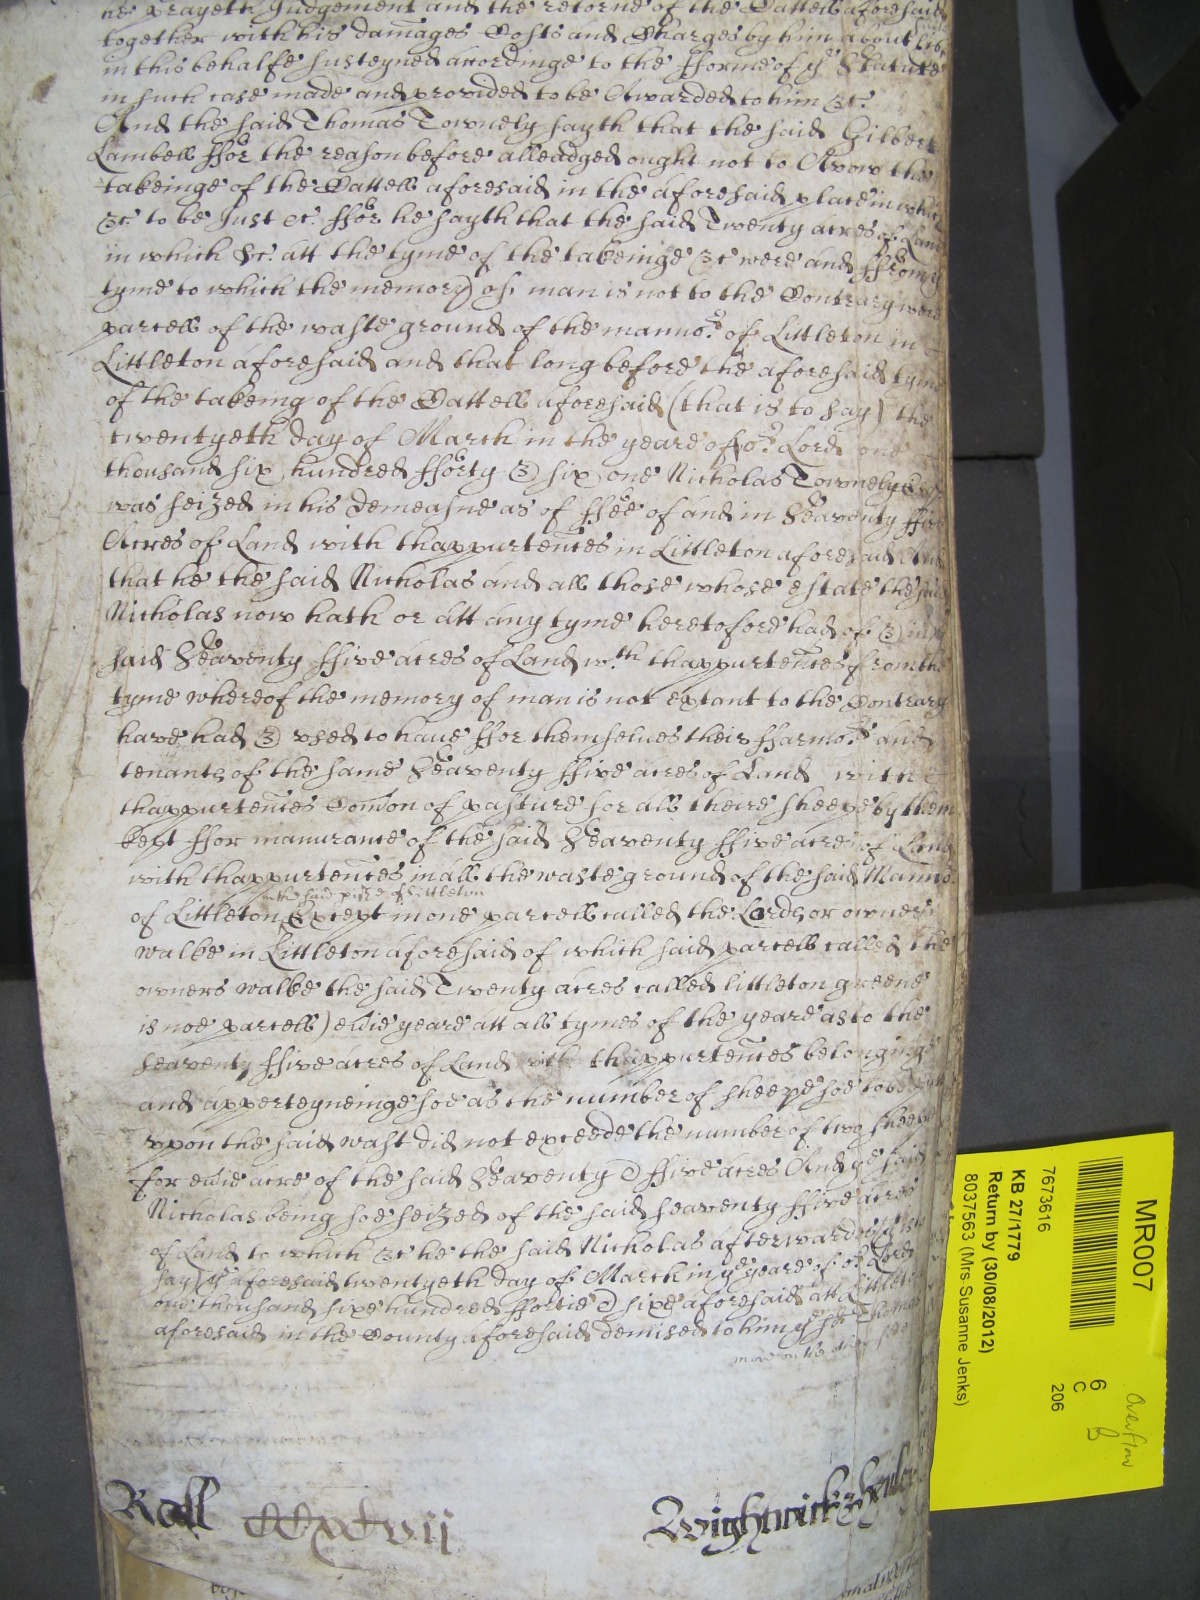 he prayeth Judgement and the retorne of the Cattell aforesaid
together with his damages Costs and Charges by him about
in this behalfe susteyned accordinge to the fforme of ye Statute
in such case made and provided to be Awarded to him &c.
And the said Thomas Townely sayth that the said Gilbert
Lambell ffor the reason before alleadged ought not to Avow the
takeinge of the Cattell aforesaid in the aforesaid place in which
&c. to be Just &c. ffor he sayth that the said Twenty acres of Land
in which &c. att the tyme of the takeinge &c were and ffrom ye
tyme to which the memory of man is not to the Contrary were
parcell of the waste ground of the mannor of Littleton in
Littleton aforesaid and that long before the aforesaid tyme
of the takeing of the Cattell aforesaid (that is to say) the
twentyeth day of March in the yeare of or Lord one
thousand six hundred fforty & six one Nicholas Townely
was seized in his demeasne as of ffee of and in Seaventy ffive
Acres of Land with thappurtences in Littleton aforesaid And
that he the said Nicholas and all those whose estate the said
Nicholas now hath or att any tyme heretofore had of & in ye
said Seaventy ffive acres of Land wth thappurtences from the
tyme whereof the memory of man is not extant to the Contrary
have had & vsed to haue ffor themselues their ffarmors and
tenants of the same Seaventy ffive acres of Land with
thappurtences Comon of pasture for all theire sheepe by them
kept ffor manurance of the said Seaventy ffive acres of Land
with thappurtences in all the waste ground of the said Mannor
in the said pishe of Littleton
of Littleton (Except in one parcell called the Lords or owners
walke in Littleton aforesaid of which said parcell called the
owners walke the said Twenty acres called littleton greene
is noe parcell) evie yeare att all tymes of the yeare as to the
seaventy ffive acres of Land with thappurtences belonginge
and apperteyneinge soe as the number of sheepe soe to be putt
vpon the said wast did not exceede the number of two sheepe
for evie acre of the said Seaventy & ffive acres And ye said
Nicholas being soe seized of the said seaventy ffive acres
of Land to which &c he the said Nicholas afterwards
say) ye aforesaid twentyeth day of March in ye yeare of or Lord
one thousand sixe hundred ffortie & sixe aforesaid att Littleton
aforesaid in the County aforesaid demised to him ye sd Thomas
more on the other side
Roll CCxxvii
Wightwick
MR007
7673616
KB 27/1779
Return by (30/08/2012)
8037563 (Mrs Susanne Jenks)
6
C
206
Overflow
B